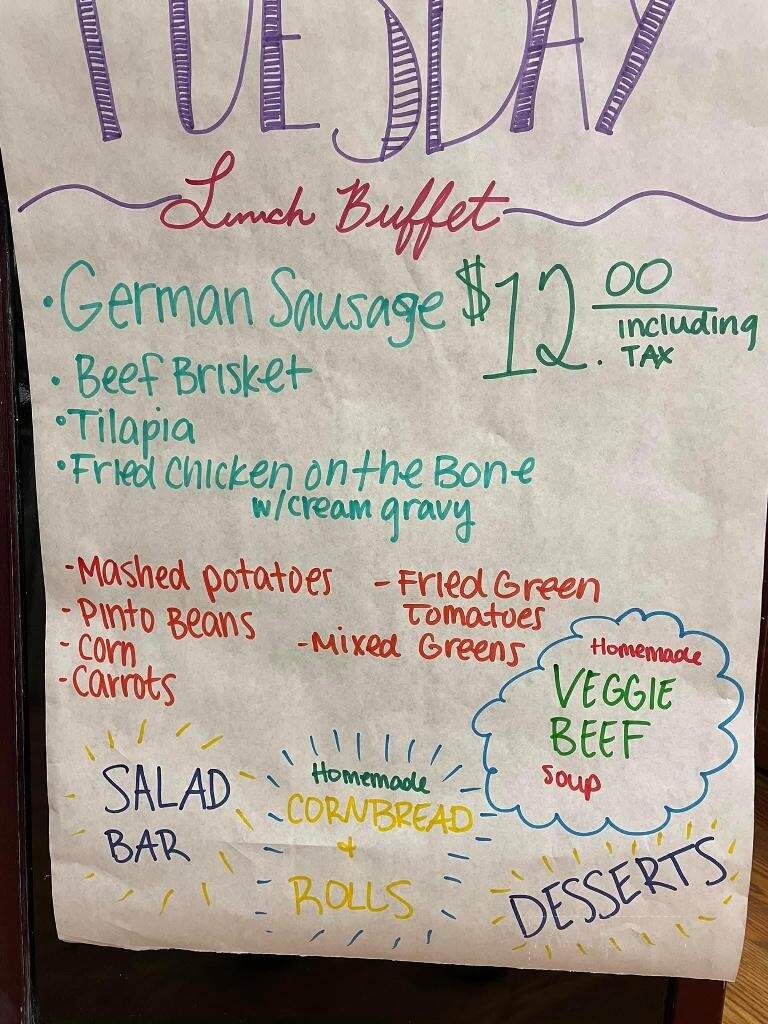 TUESDAY
Lunch Buffet
• German Sausage
$12.00
including
TAX
• Beef Brisket
• Tilapia
• Fried Chicken on the Bone
w/cream gravy
- Mashed potatoes
- Pinto Beans
- Corn
- Carrots
- Fried Green
Tomatoes
- Mixed Greens
Homemade
VEGGIE
BEEF
Soup
SALAD
BAR
Homemade
CORNBREAD
+
ROLLS
DESSERTS